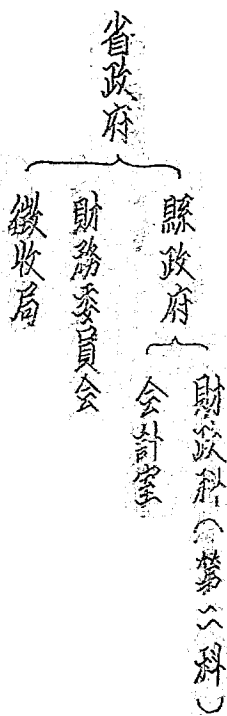 省政府
縣政府
財政科(第二科)
会計室
財務委員会
徴收局